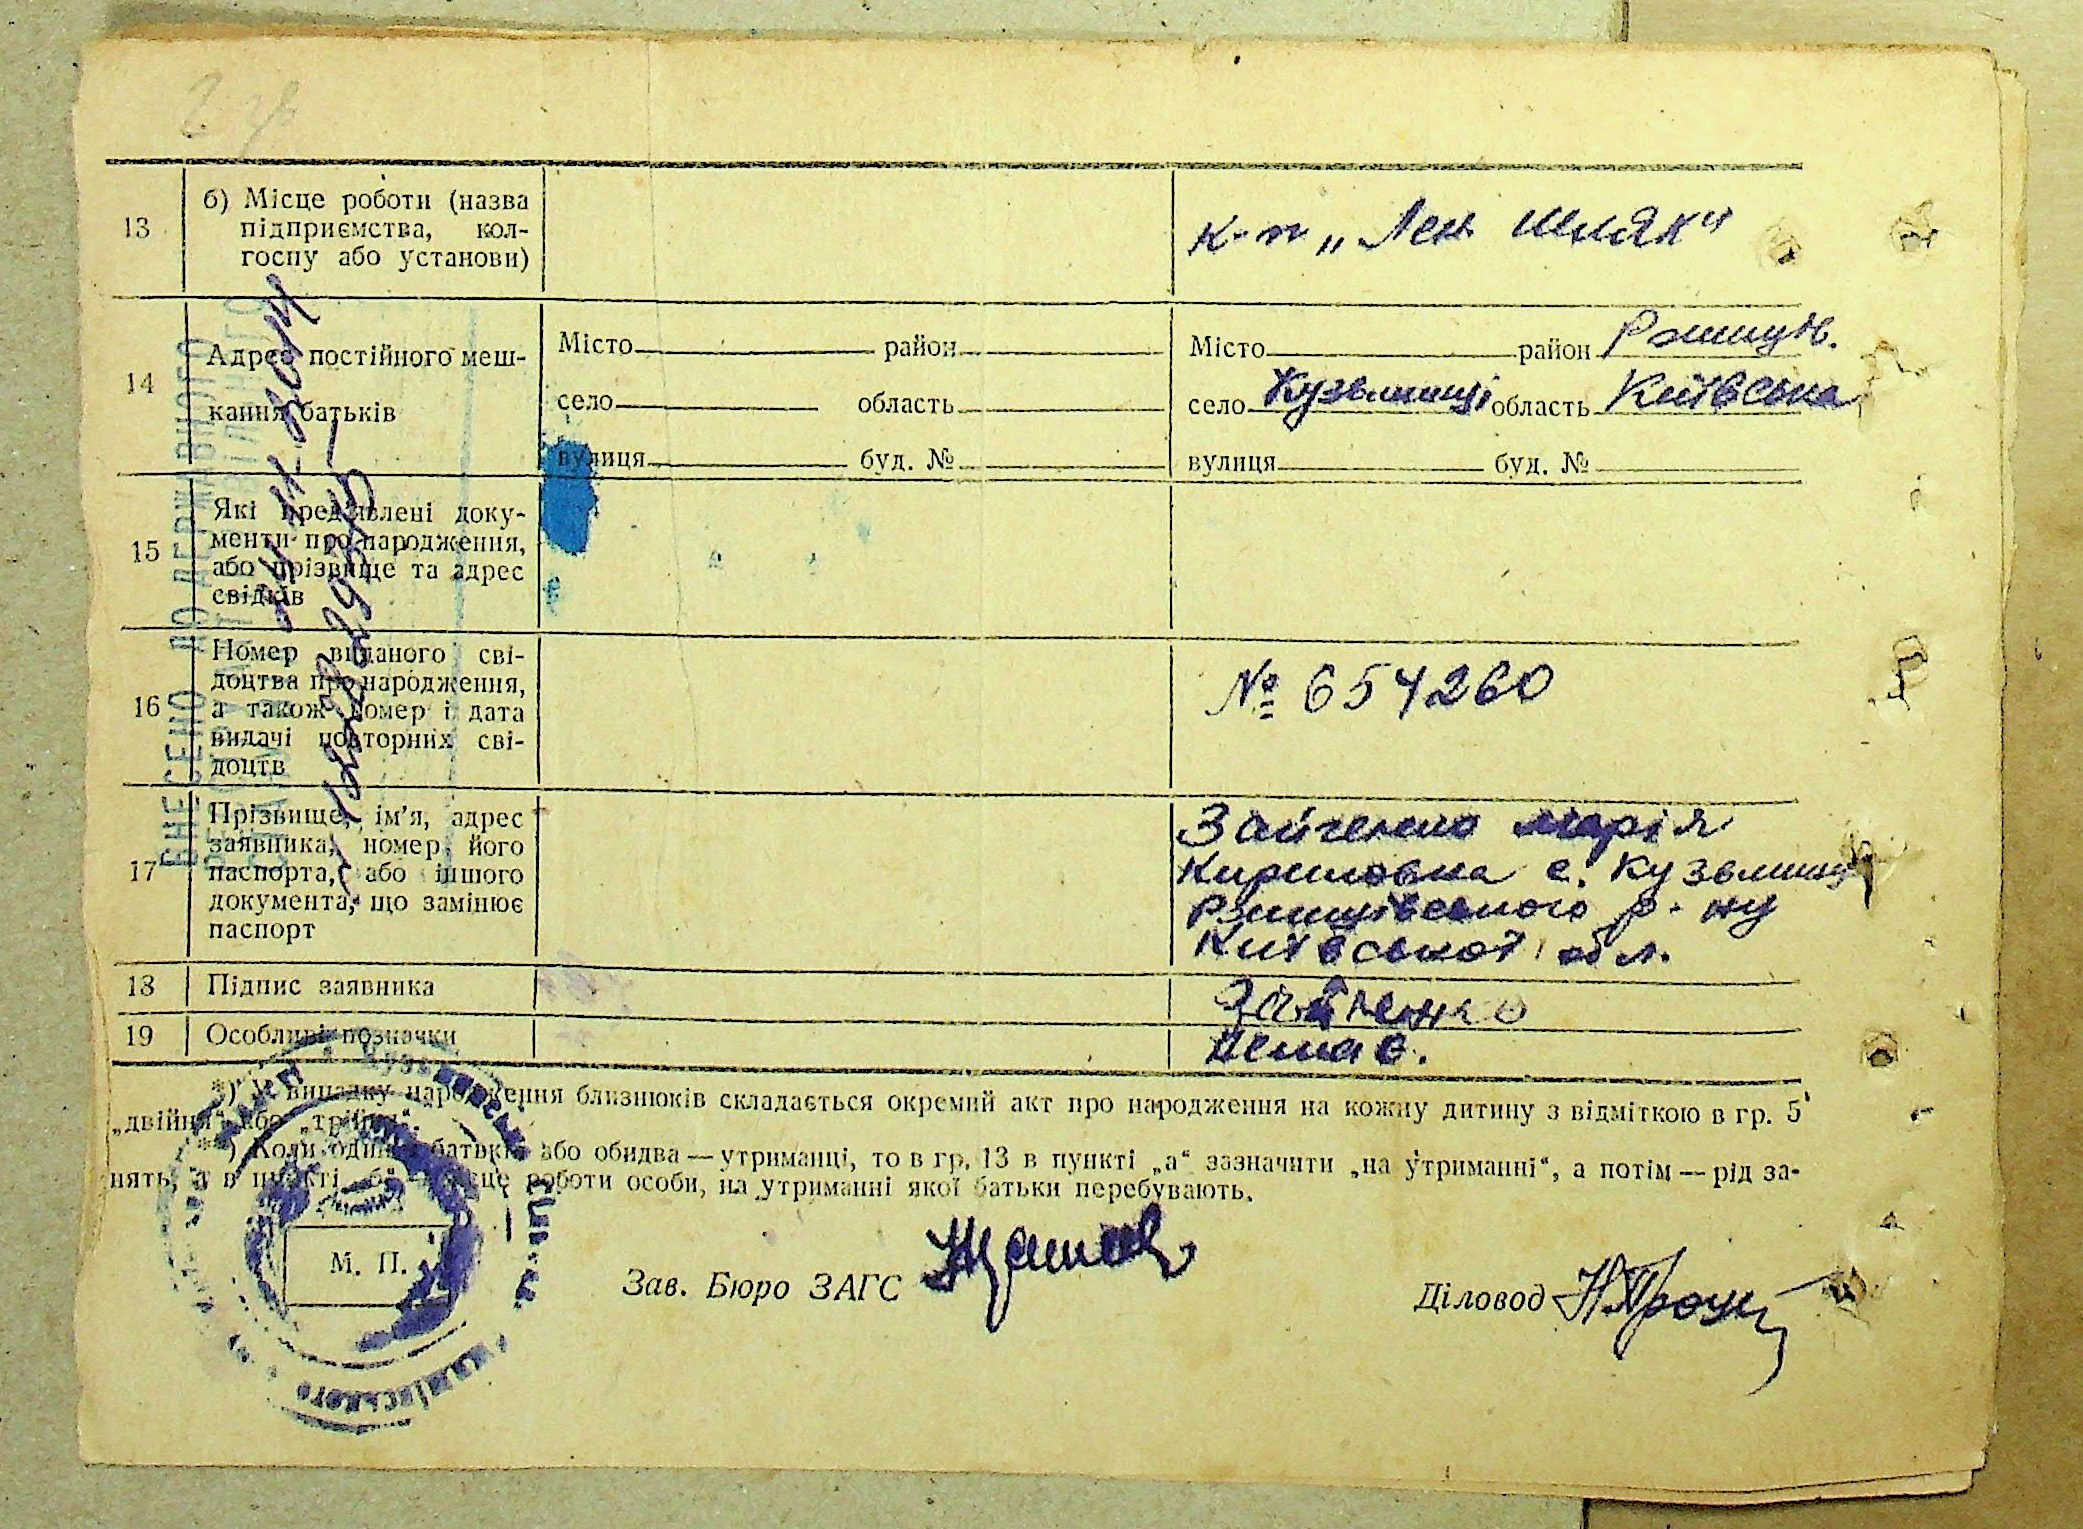 13
б) Місце роботи (назва
підприємства, кол-
госпу або установи)
к-п „Лен шлях"
14
Адрес постійного меш-
кання батьків
Місто район
село область
вулиця буд. №
Місто район Ржищів.
село Кузьминці область Київська
вулиця буд. №
15
Які пред'явлені доку-
менти про народження,
або прізвище та адрес
свідків
16
Номер виданого сві-
доцтва про народження,
а також номер і дата
видачі повторних сві-
доцтв
№ 654260
17
Прізвище, ім'я, адрес
заявника, номер його
паспорта, або іншого
документа, що замінює
паспорт
Зайченко Марія
Кириловна с. Кузьминці
Ржищівського р-ну
Київської обл.
18
Підпис заявника
Зайченко
19
Особливі позначки
Немає.
ВНЕСЕНО ДО ДЕРЖАВНОГО
*) У випадку народження близнюків складається окремий акт про народження на кожну дитину з відміткою в гр. 5
„двійня" або „трійня".
**) Коли один з батьків або обидва — утриманці, то в гр. 13 в пункті „а" зазначити „на утриманні", а потім — рід за-
нять, а в пункті „б" — місце роботи особи, на утриманні якої батьки перебувають.
М. П.
Зав. Бюро ЗАГС
Діловод